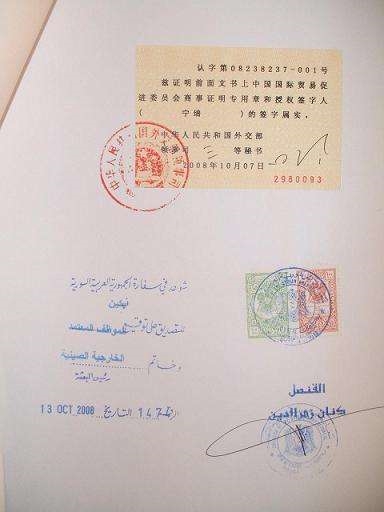 认字第08238237-001号
兹证明前面文书上中国国际贸易促
进委员会商事证明专用章和授权签字人
( 宁 ) 的签字属实。
中华人民共和国外交部
三 等秘书
2008年10月07日
2980093
شوهد في سفارة الجمهورية العربية السورية
بكين
للتصديق على توقيع الموظف المعتمد
وخاتم الخارجية الصينية
رئيس البعثة
القنصل
كنان زهر الدين
13 OCT 2008 التاريخ 147 الرقم